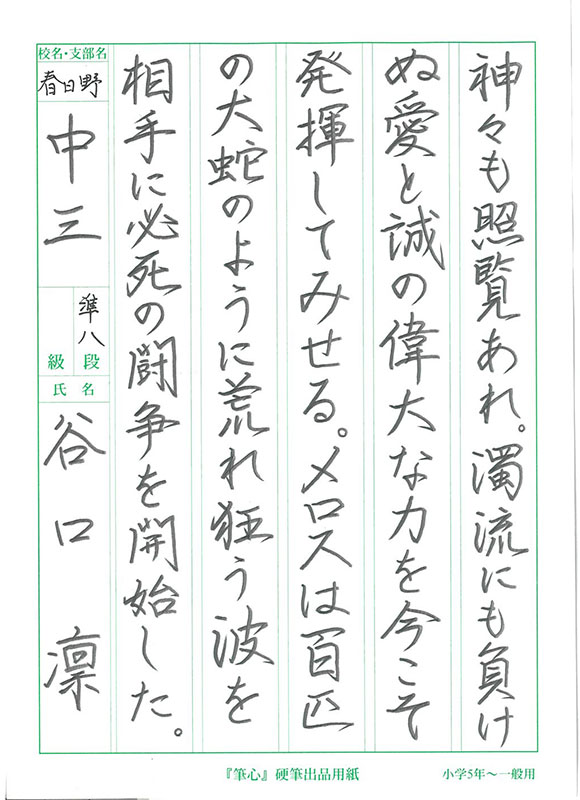 神々も照覧あれ。濁流にも負け
ぬ愛と誠の偉大な力を今こそ
発揮してみせる。メロスは百匹
の大蛇のように荒れ狂う波を
相手に必死の闘争を開始した。
校名・支部名
春日野
中三
準八
段
級
氏名
谷口凛
『筆心』硬筆出品用紙
小学5年～一般用